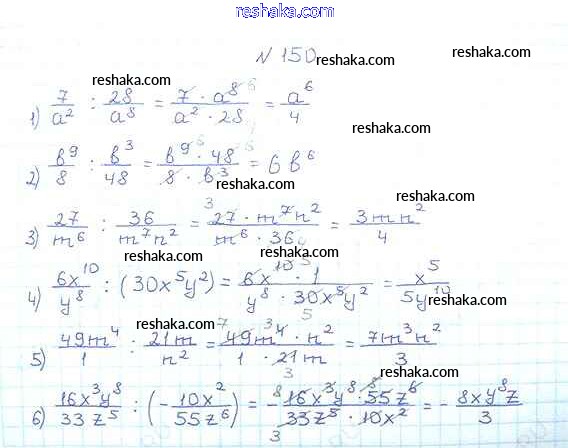 reshaka.com
N 150
reshaka.com
reshaka.com reshaka.com
1) 7/a² : 28/a⁸ = 7 · a⁸ ⁶/a² · 28 = a⁶/4
reshaka.com reshaka.com
2) в⁹/8 : в³/48 = в⁹ ⁶ · 48 ⁶/8 · в³ = 6в⁶
reshaka.com
reshaka.com
3) 27/m⁶ : 36/m⁷n² = ³ 27 · m⁷n²/m⁶ · 36 ₄ = 3mn²/4
reshaka.com
reshaka.com
4) 6x¹⁰/y⁸ : (30x⁵y²) = 6x¹⁰ ⁵ · 1/y⁸ · 30x⁵y² ₅ = x⁵/5y¹⁰
reshaka.com
reshaka.com
5) 49m⁴/1 : 21m/n² = ⁷ 49m⁴ ³ · n²/1 · 21m ₃ = 7m³n²/3
reshaka.com
reshaka.com
6) 16x³y⁸/33z⁵ : (- 10x²/55z⁶) = - ⁸ 16x³y⁸ · 55z⁶/33z⁵ · 10x² ₃ = - 8xy⁸z/3
reshaka.com